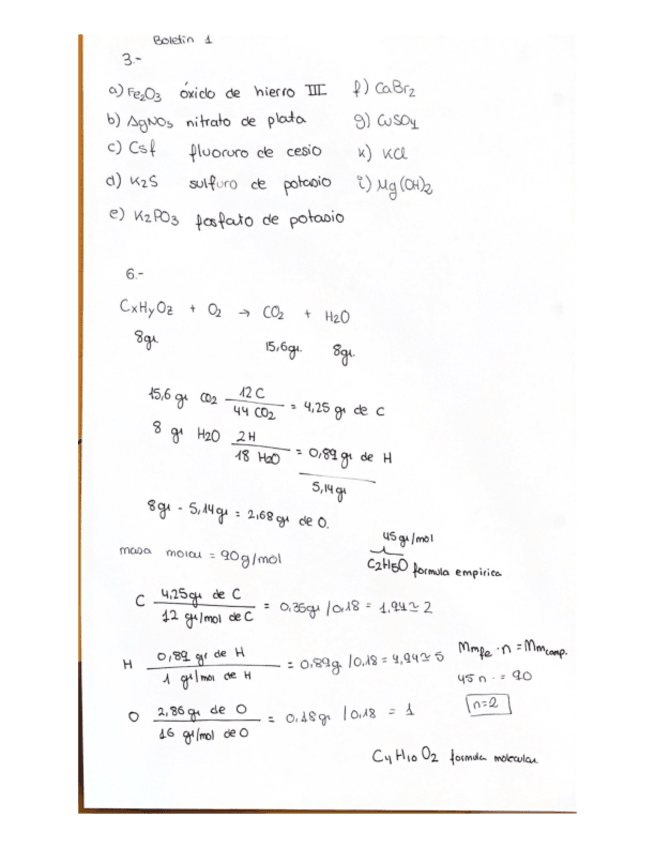 Boletín 1
3.-
a) Fe2O3 óxido de hierro III f) CaBr2
b) AgNO3 nitrato de plata g) CuSO4
c) Csf fluoruro de cesio k) KCl
d) K2S sulfuro de potasio i) Mg(OH)2
e) K2PO3 fosfato de potasio
6.-
CxHyOz + O2 → CO2 + H2O
8gr 15,6gr. 8gr.
15,6 gr CO2 12 C / 44 CO2 = 4,25 gr de C
8 gr H2O 2H / 18 H2O = 0,89 gr de H
5,14 gr
8gr - 5,14 gr = 2,68 gr de O.
45 gr/mol
masa molar = 90g/mol C2H5O formula empirica
C 4,25gr de C / 12 gr/mol de C = 0,35gr /0,18 = 1,94 ≃ 2
H 0,89 gr de H / 1 gr/mol de H = 0,89g /0,18 = 4,94 ≃ 5 Mmfe · n = Mmcomp.
45 n · = 90
O 2,86 gr de O / 16 gr/mol de O = 0,18 gr /0,18 = 1 n=2
C4H10O2 formula molecular